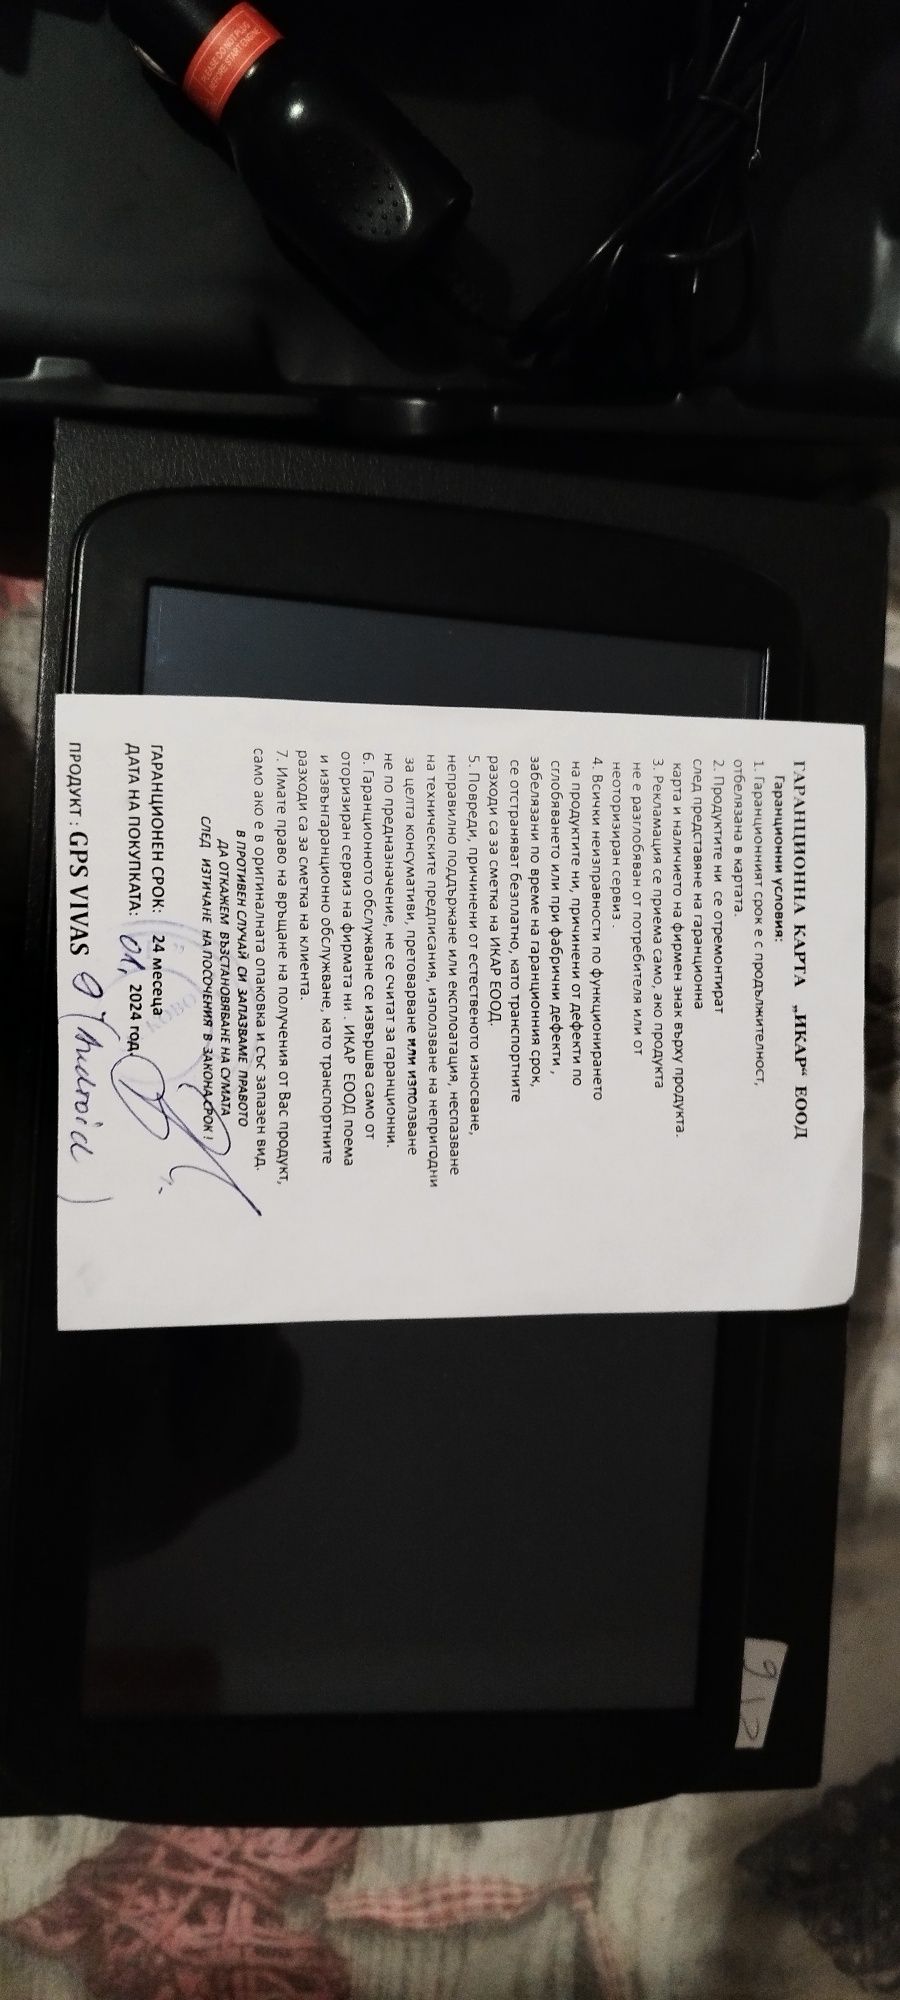 ГАРАНЦИОННА КАРТА „ИКАР“ ЕООД
Гаранционни условия:
1. Гаранционният срок е с продължителност,
отбелязана в картата.
2. Продуктите ни се отремонтират
след представяне на гаранционна
карта и наличието на фирмен знак върху продукта.
3. Рекламация се приема само, ако продукта
не е разглобяван от потребителя или от
неоторизиран сервиз .
4. Всички неизправности по функционирането
на продуктите ни, причинени от дефекти по
сглобяването или при фабрични дефекти ,
забелязани по време на гаранционния срок,
се отстраняват безплатно, като транспортните
разходи са за сметка на ИКАР ЕООД.
5. Повреди, причинени от естественото износване,
неправилно поддържане или експлоатация, неспазване
на техническите предписания, използване на непригодни
за целта консумативи, претоварване или използване
не по предназначение, не се считат за гаранционни.
6. Гаранционното обслужване се извършва само от
оторизиран сервиз на фирмата ни . ИКАР ЕООД поема
и извънгаранционно обслужване, като транспортните
разходи са за сметка на клиента.
7. Имате право на връщане на получения от Вас продукт,
само ако е в оригиналната опаковка и със запазен вид.
В ПРОТИВЕН СЛУЧАЙ СИ ЗАПАЗВАМЕ ПРАВОТО
ДА ОТКАЖЕМ ВЪЗСТАНОВЯВАНЕ НА СУМАТА
СЛЕД ИЗТИЧАНЕ НА ПОСОЧЕНИЯ В ЗАКОНА СРОК !
ГАРАНЦИОНЕН СРОК: 24 месеца
ДАТА НА ПОКУПКАТА: 01. 2024 год.
ПРОДУКТ : GPS VIVAS 9 (Android)
PLEASE DO NOT PLUG
BEFORE START ENGINE